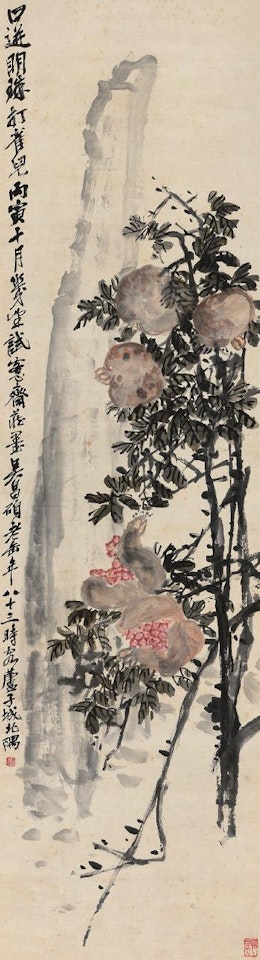 口迸明珠打雀兒丙寅十月癸堂試愙齋藏墨吳昌碩老缶年八十三時客滬子城北隅